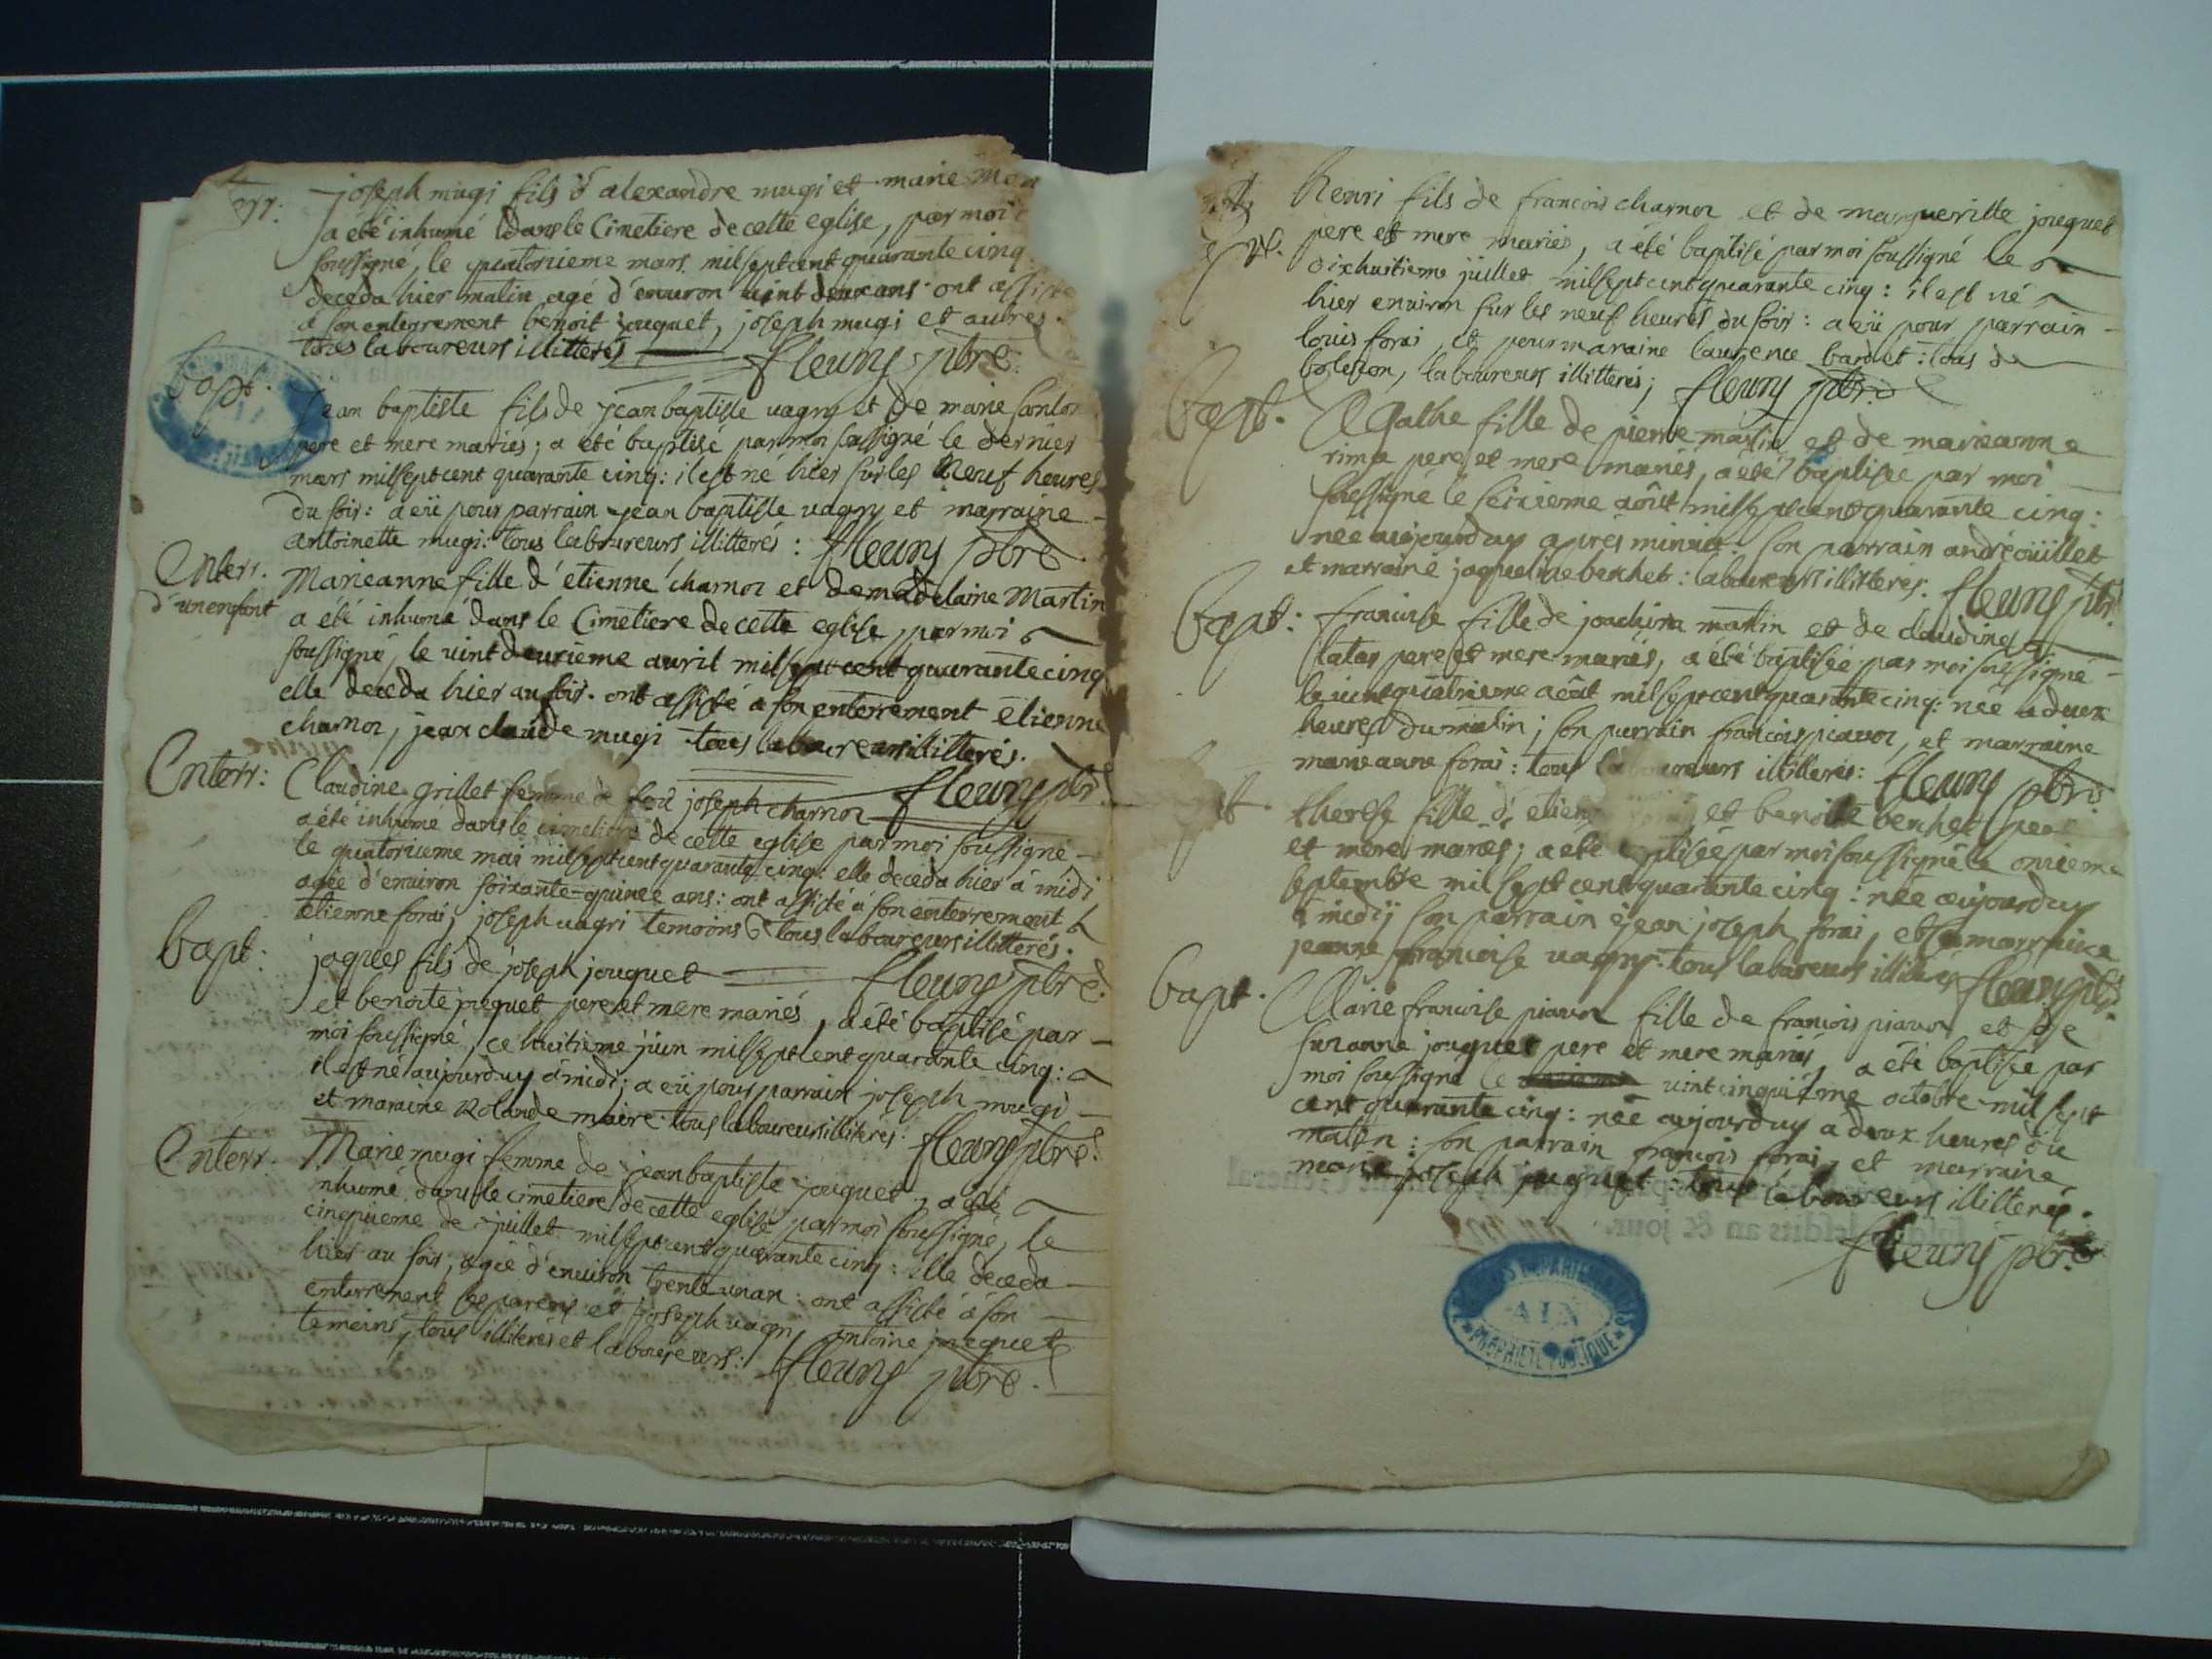 err:
joseph mugi fils d'alexandre mugi et marie
a été inhumé dans le Cimetiere de cette eglise, par moi
soussigné, le quatorzieme mars milseptcent quarante cinq
deceda hier matin agé d'environ vint deux ans ont assisté
a son enterrement benoit jouquet, joseph mugi et autres
tous laboureurs illitterés fleury pbre.
bapt.
jean baptiste fils de jean baptiste vagny et de marie
pere et mere mariés; a été baptisé par moi soussigné le dernier
mars milseptcent quarante cinq: il est né hier sur les Neuf heures
du soir: a eü pour parrain jean baptiste vagny et marraine
antoinette mugi: tous laboureurs illitterés: fleury pbre
Enterr.
d'un enfant
Marieanne fille d'etienne charnoz et de madelaine Martin
a été inhumé dans le Cimetiere de cette eglise, par moi
soussigné, le vint deuxieme avril milseptcent quarante cinq
elle deceda hier au soir. ont assisté a son enterrement etienne
charnoz, jean claude mugi tous laboureurs illitterés.
fleury pbr
Enterr:
Claudine grillet femme de feü joseph charnoz
a été inhumé dans le cimetiere de cette eglise par moi soussigné
le quatorzieme mai milseptcent quarante cinq: elle deceda hier à midi
agée d'environ soixante-quinze ans: ont assisté à son enterrement
etienne forai, joseph vagni temoins tous laboureurs illitterés.
fleury pbre.
bapt:
jaques fils de joseph jouquet
et benoite jouquet pere et mere mariés, a été baptisé par
moi soussigné, ce huitieme juin milseptcent quarante cinq:
il est né aujourduy á midi; a eü pour parrain joseph mugi
et maraine Rolande maire tous laboureurs illiterés: fleury pbre.
Enterr.
Marie mugi femme de jean baptiste jouquet, a été
inhumé dans le cimetiere de cette eglise par moi soussigné, le
cinquieme de juillet milseptcent quarante cinq: elle deceda
hier au soir, agée d'environ trente un an: ont assisté á son
enterrement ses parens et joseph vagni, antoine jouquet
temoins, tous illiterés et laboureurs: fleury pbre.
henri fils de francois charnoz et de margueritte jouquet
pere et mere mariés, a été baptisé par moi soussigné le
dixhuitieme juillet milseptcent quarante cinq: il est né
hier environ sur les neuf heures du soir: a eü pour parrain
louis forai, et pour maraine laurence bardet: tous de
boleson, laboureurs illitterés; fleury pbre
bapt.
Agathe fille de pierre martin et de marieanne
rima pere et mere mariés, a été baptisée par moi
soussigné le seizieme aôut milseptcent quarante cinq:
née aujourduy aprés minuit. son parrain andré oüillet
et marraine jaqueline berchet: laboureurs illitterés. fleury pbr.
bapt:
francoise fille de joachim martin et de claudine
pere et mere mariés, a été baptisée par moi soussigné
le vint quatrieme aôut milseptcent quarante cinq: née a deux
heures du matin; son parrain francois piavoz, et marraine
marieanne forai: tous laboureurs illitterés: fleury pbre
therese fille d'etienne et benoite berchet pere
et mere mariés; a été baptisée par moi soussigné le onzieme
septembre milseptcent quarante cinq: née aujourduy
á midij son parrain jean joseph forai, et sa marraine
jeanne francoise vagny. tous laboureurs illiterés fleury pbr.
bapt.
Marie francoise piavoz fille de francois piavoz et de
suzanne jouquet pere et mere mariés, a été baptisée par
moi soussigné le vint cinquiéme octobre mil sept
cent quarante cinq: née aujourduy a deux heures du
matin: son parrain francois forai, et marraine
marie joseph jouquet: tous laboureurs illitterés.
fleury pbre
ARCHIVES DEPARTEMENTALES
AIN
PROPRIETE PUBLIQUE